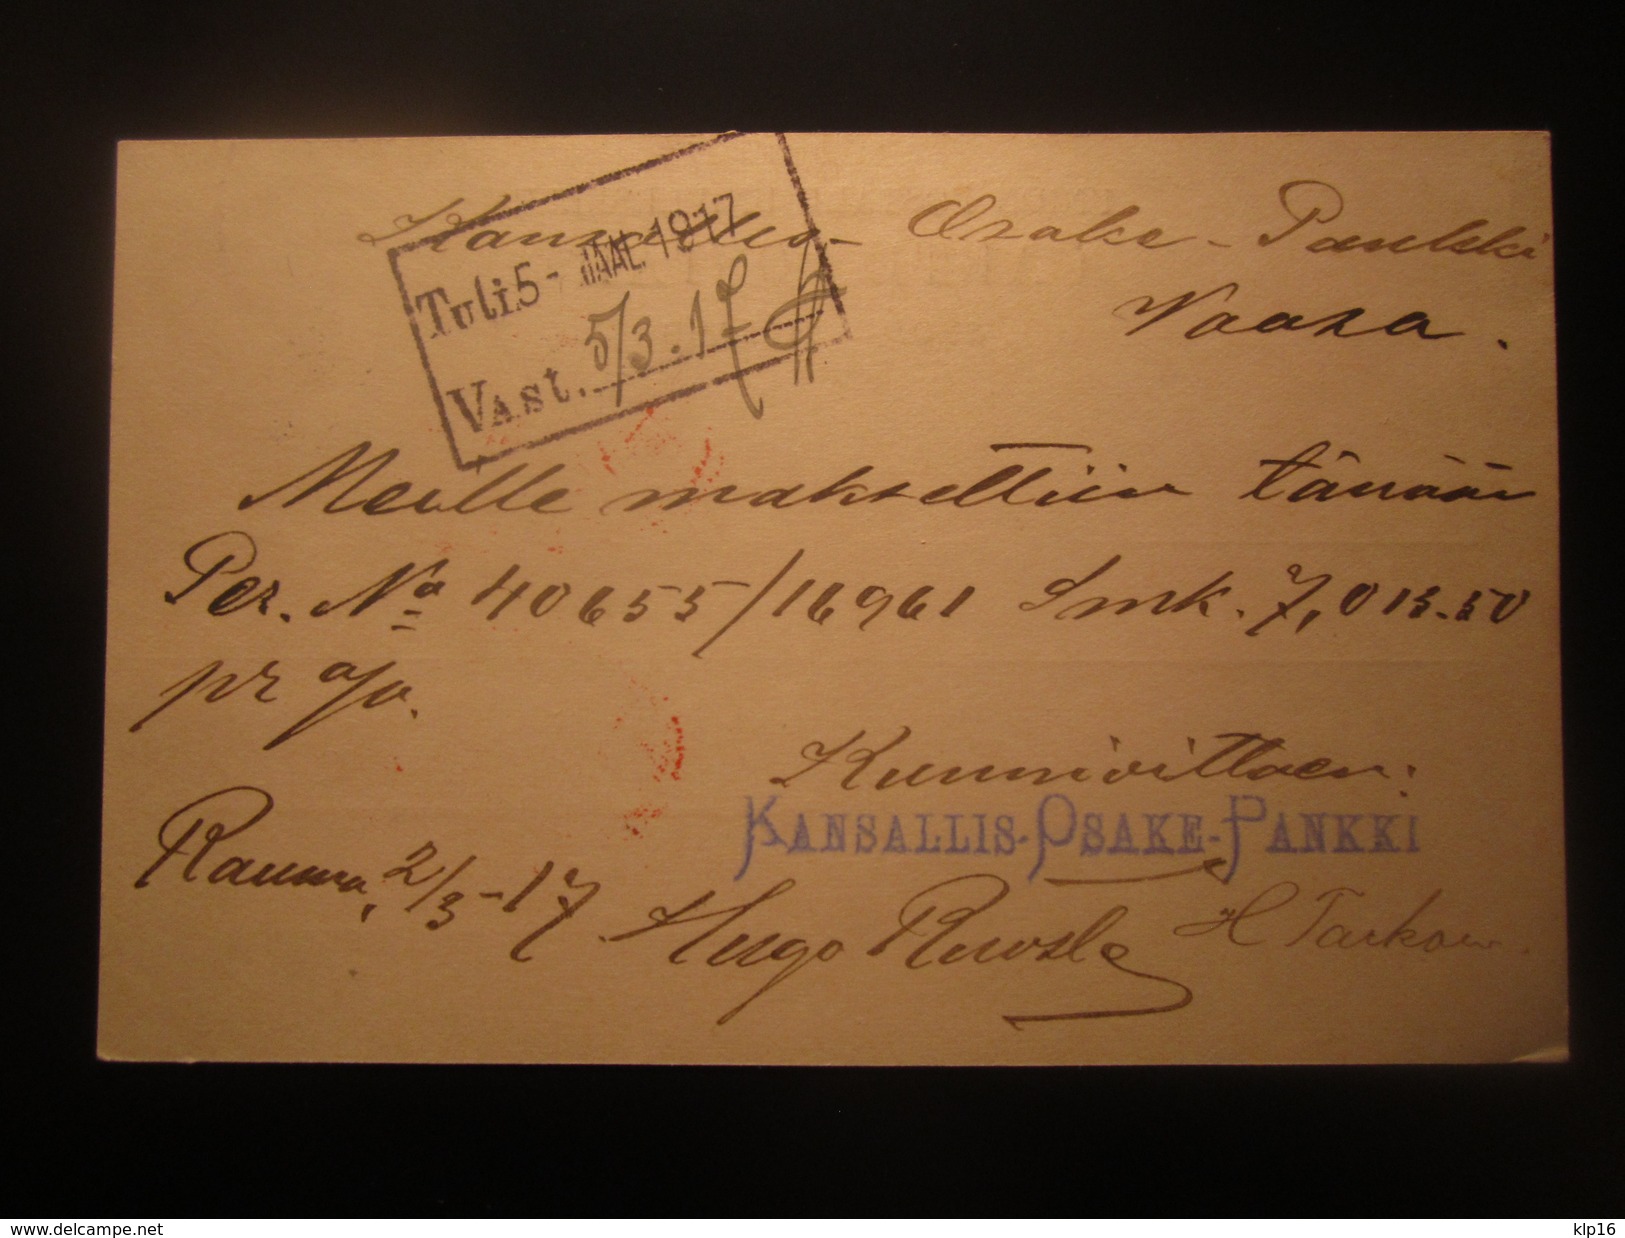 Kansallis-Osake-Pankki
Vaasa.
Tuli 5-MAAL.1917
Vast. 5/3.17
Meille maksettiin tänään
Per. No 40655/16961 Smk. 7,013.50
pr a/o.
Kunnioittaen:
KANSALLIS-OSAKE-PANKKI
Rauma, 2/3-17.
Hugo H Tarkow
www.delcampe.net
klp16